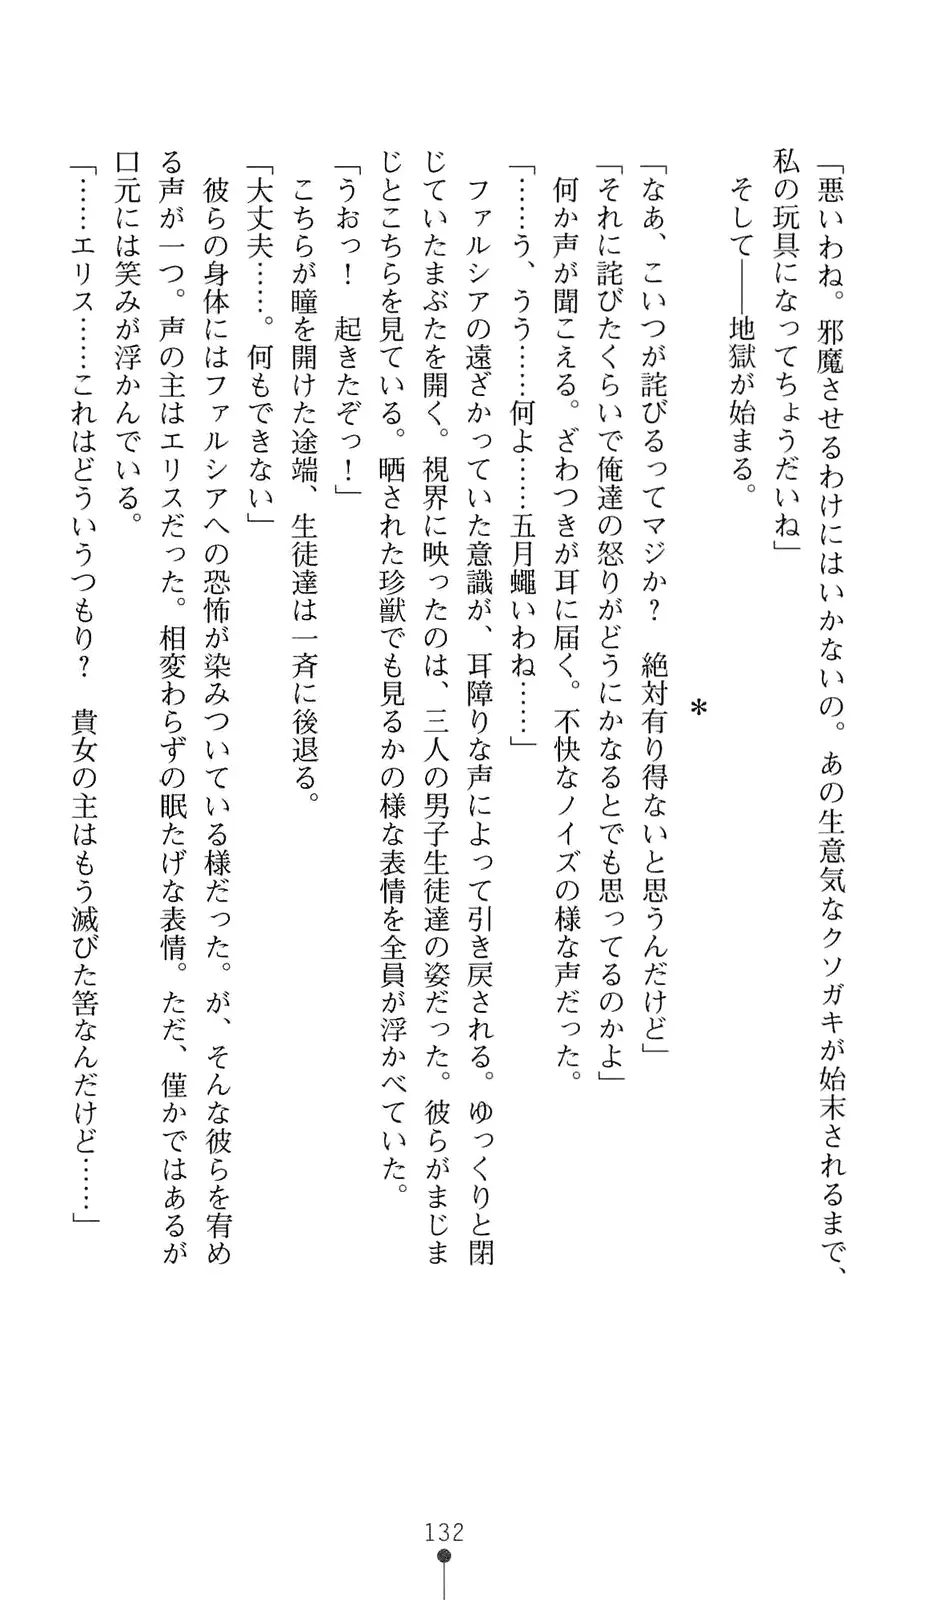 「悪いわね。邪魔させるわけにはいかないの。あの生意気なクソガキが始末されるまで、
私の玩具になってちょうだいね」
　そして――地獄が始まる。
＊
「なあ、こいつが詫びるってマジか？　絶対有り得ないと思うんだけど」
「それに詫びたくらいで俺達の怒りがどうにかなるとでも思ってるのかよ」
　何か声が聞こえる。ざわつきが耳に届く。不快なノイズの様な声だった。
「……う、うう……何よ……五月蠅いわね……」
　ファルシアの遠ざかっていた意識が、耳障りな声によって引き戻される。ゆっくりと閉
じていたまぶたを開く。視界に映ったのは、三人の男子生徒達の姿だった。彼らがまじま
じとこちらを見ている。晒された珍獣でも見るかの様な表情を全員が浮かべていた。
「うおっ！　起きたぞっ！」
　こちらが瞳を開けた途端、生徒達は一斉に後退る。
「大丈夫……。何もできない」
　彼らの身体にはファルシアへの恐怖が染みついている様だった。が、そんな彼らを宥め
る声が一つ。声の主はエリスだった。相変わらずの眠たげな表情。ただ、僅かではあるが
口元には笑みが浮かんでいる。
「……エリス……これはどういうつもり？　貴女の主はもう滅びた筈なんだけど……」
132